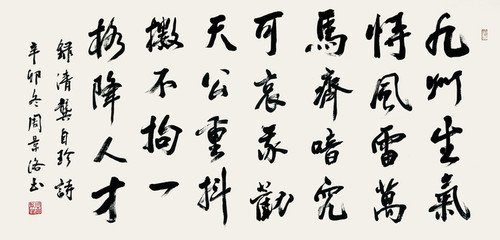 九州生氣
恃風雷萬
馬齊喑究
可哀我勸
天公重抖
擻不拘一
格降人才
錄清龔自珍詩
辛卯冬周景洛書